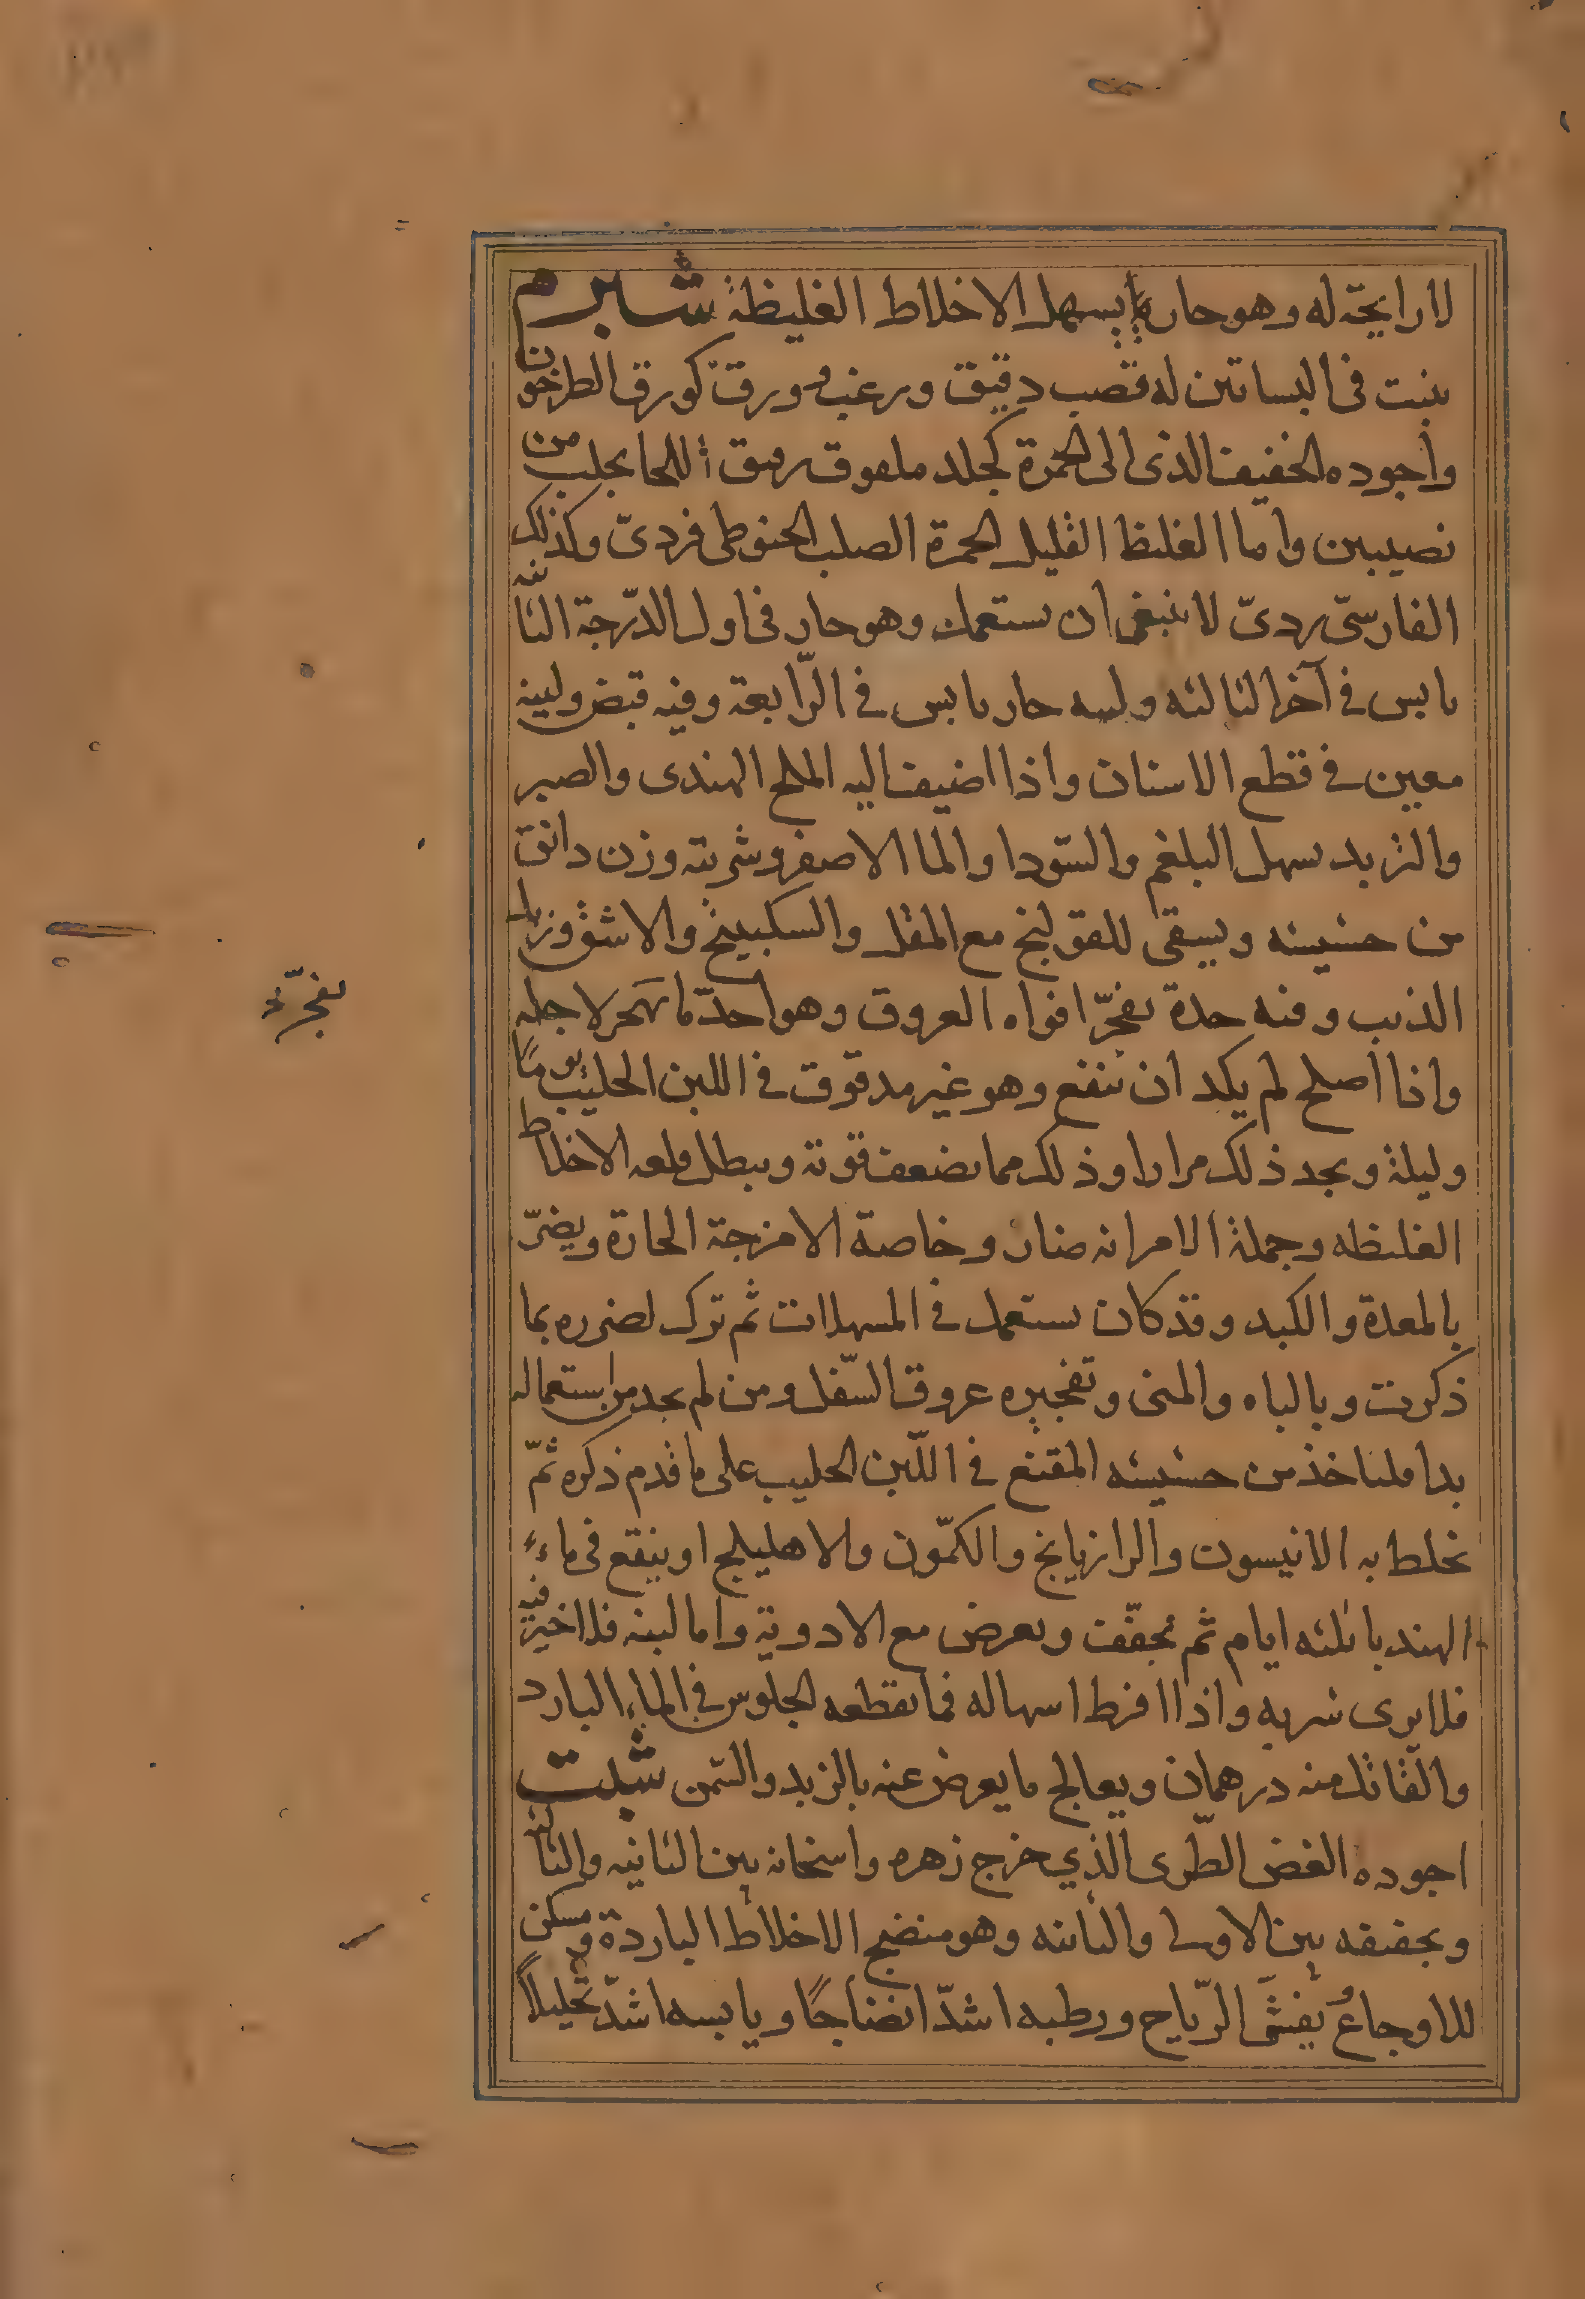 لا رايحة له وهو حار يابس يسهل الاخلاط الغليظة شبرم
ينبت فى البساتين له قصب دقيق وزغب وورق كورق الطرخون
واجوده الخفيف الذى الى الحمرة كجلد ملفوف رقيق اللحا يجلب من
نصيبين واما الغليظ القليل الحمرة الصلب الخيوطى فردىّ وكذلك
الفارسىّ ردىّ لا ينبغى ان يستعمل وهو حار فى اول الدّرجة الثانية
يابس فى آخر الثالثه ولبنه حار يابس فى الرّابعة وفيه قبض ولبنه
معين فى قطع الاسنان واذا اضيف اليه الملح الهندى والصبر
والتربد يسهل البلغم والسّودا والما الاصفر وشربته وزن دانق
من حشيشه ويسقى للقولنج مع المقل والسكبينج والاشق وزبل
الذيب وفيه حدة يفجرّ افواه العروق وهو احدّ ما يهجر لاجله
واذا اصلح لم يكد ان ينفع وهو غير مدقوق فى اللبن الحليب يومًا
وليلة ويجدد ذلك مرارا وذلك مما يضعف قوته ويبطل قلعه الاخلاط
الغليظه وجملة الامر انه ضار وخاصة الامزجة الحارة ويضرّ
بالمعدة والكبد وقد كان يستعمل فى المسهلات ثم ترك لضرره بما
ذكرت وبالباه والمنى وتفجيره عروق السّفل ومن لم يجد من استعماله
بدا فلياخذ من حشيشه المنقع فى اللّبن الحليب على ما قدم ذكره ثمّ
يخلط به الانيسون والرازيانج والكمّون والاهليلج او ينقع فى ماء
الهندبا ثلثه ايام ثم يجفّف ويعرض مع الادوية واما لبنه فلا خير فيه
فلا يرى شربه واذا افرط اسهاله فما يقطعه الجلوس فى الماء البارد
والقاتل منه درهمان ويعالج ما يعرض عنه بالزبد والسّمن شبت
اجوده الغض الطّرى الذي خرج زهره واسخانه بين الثانيه والثالثه
وتجفيفه بين الاولى والثانيه وهو منضج الاخلاط الباردة ومسكن
للاوجاع يفشّى الرّياح ورطبه اشدّ انضاجًا ويابسه اشدّ تحليلاً
يفجرّ